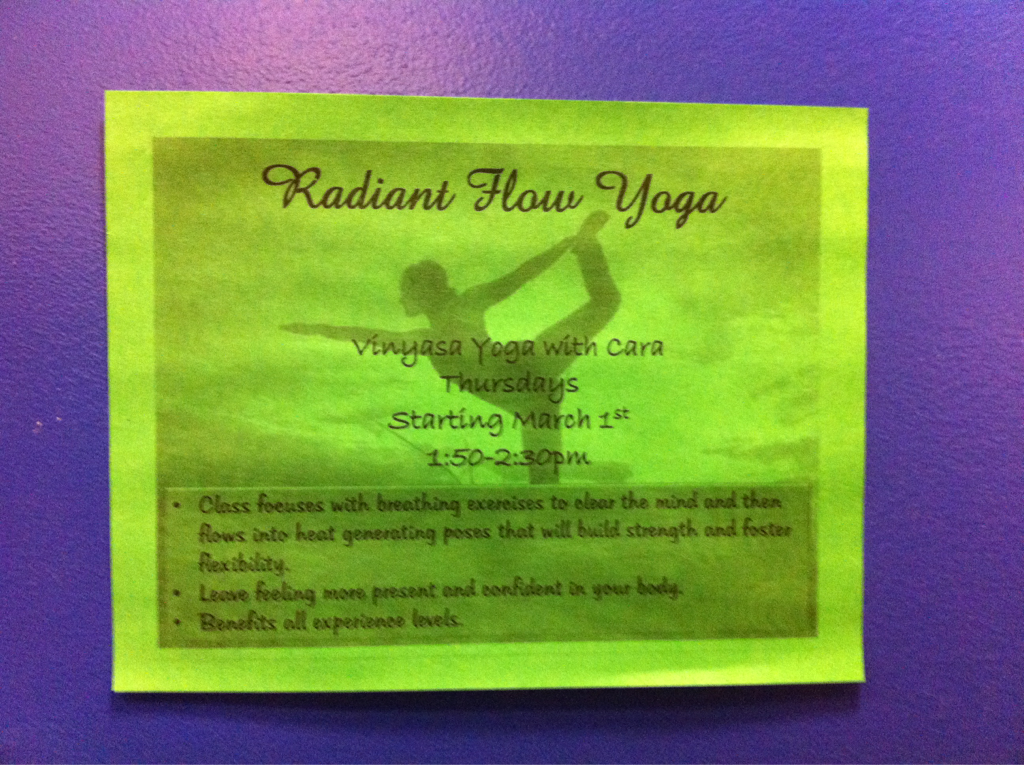 Radiant Flow Yoga
Vinyasa Yoga with Cara
Thursdays
Starting March 1st
1:50-2:30pm
• Class focuses with breathing exercises to clear the mind and then
flows into heat generating poses that will build strength and foster
flexibility.
• Leave feeling more present and confident in your body.
• Benefits all experience levels.